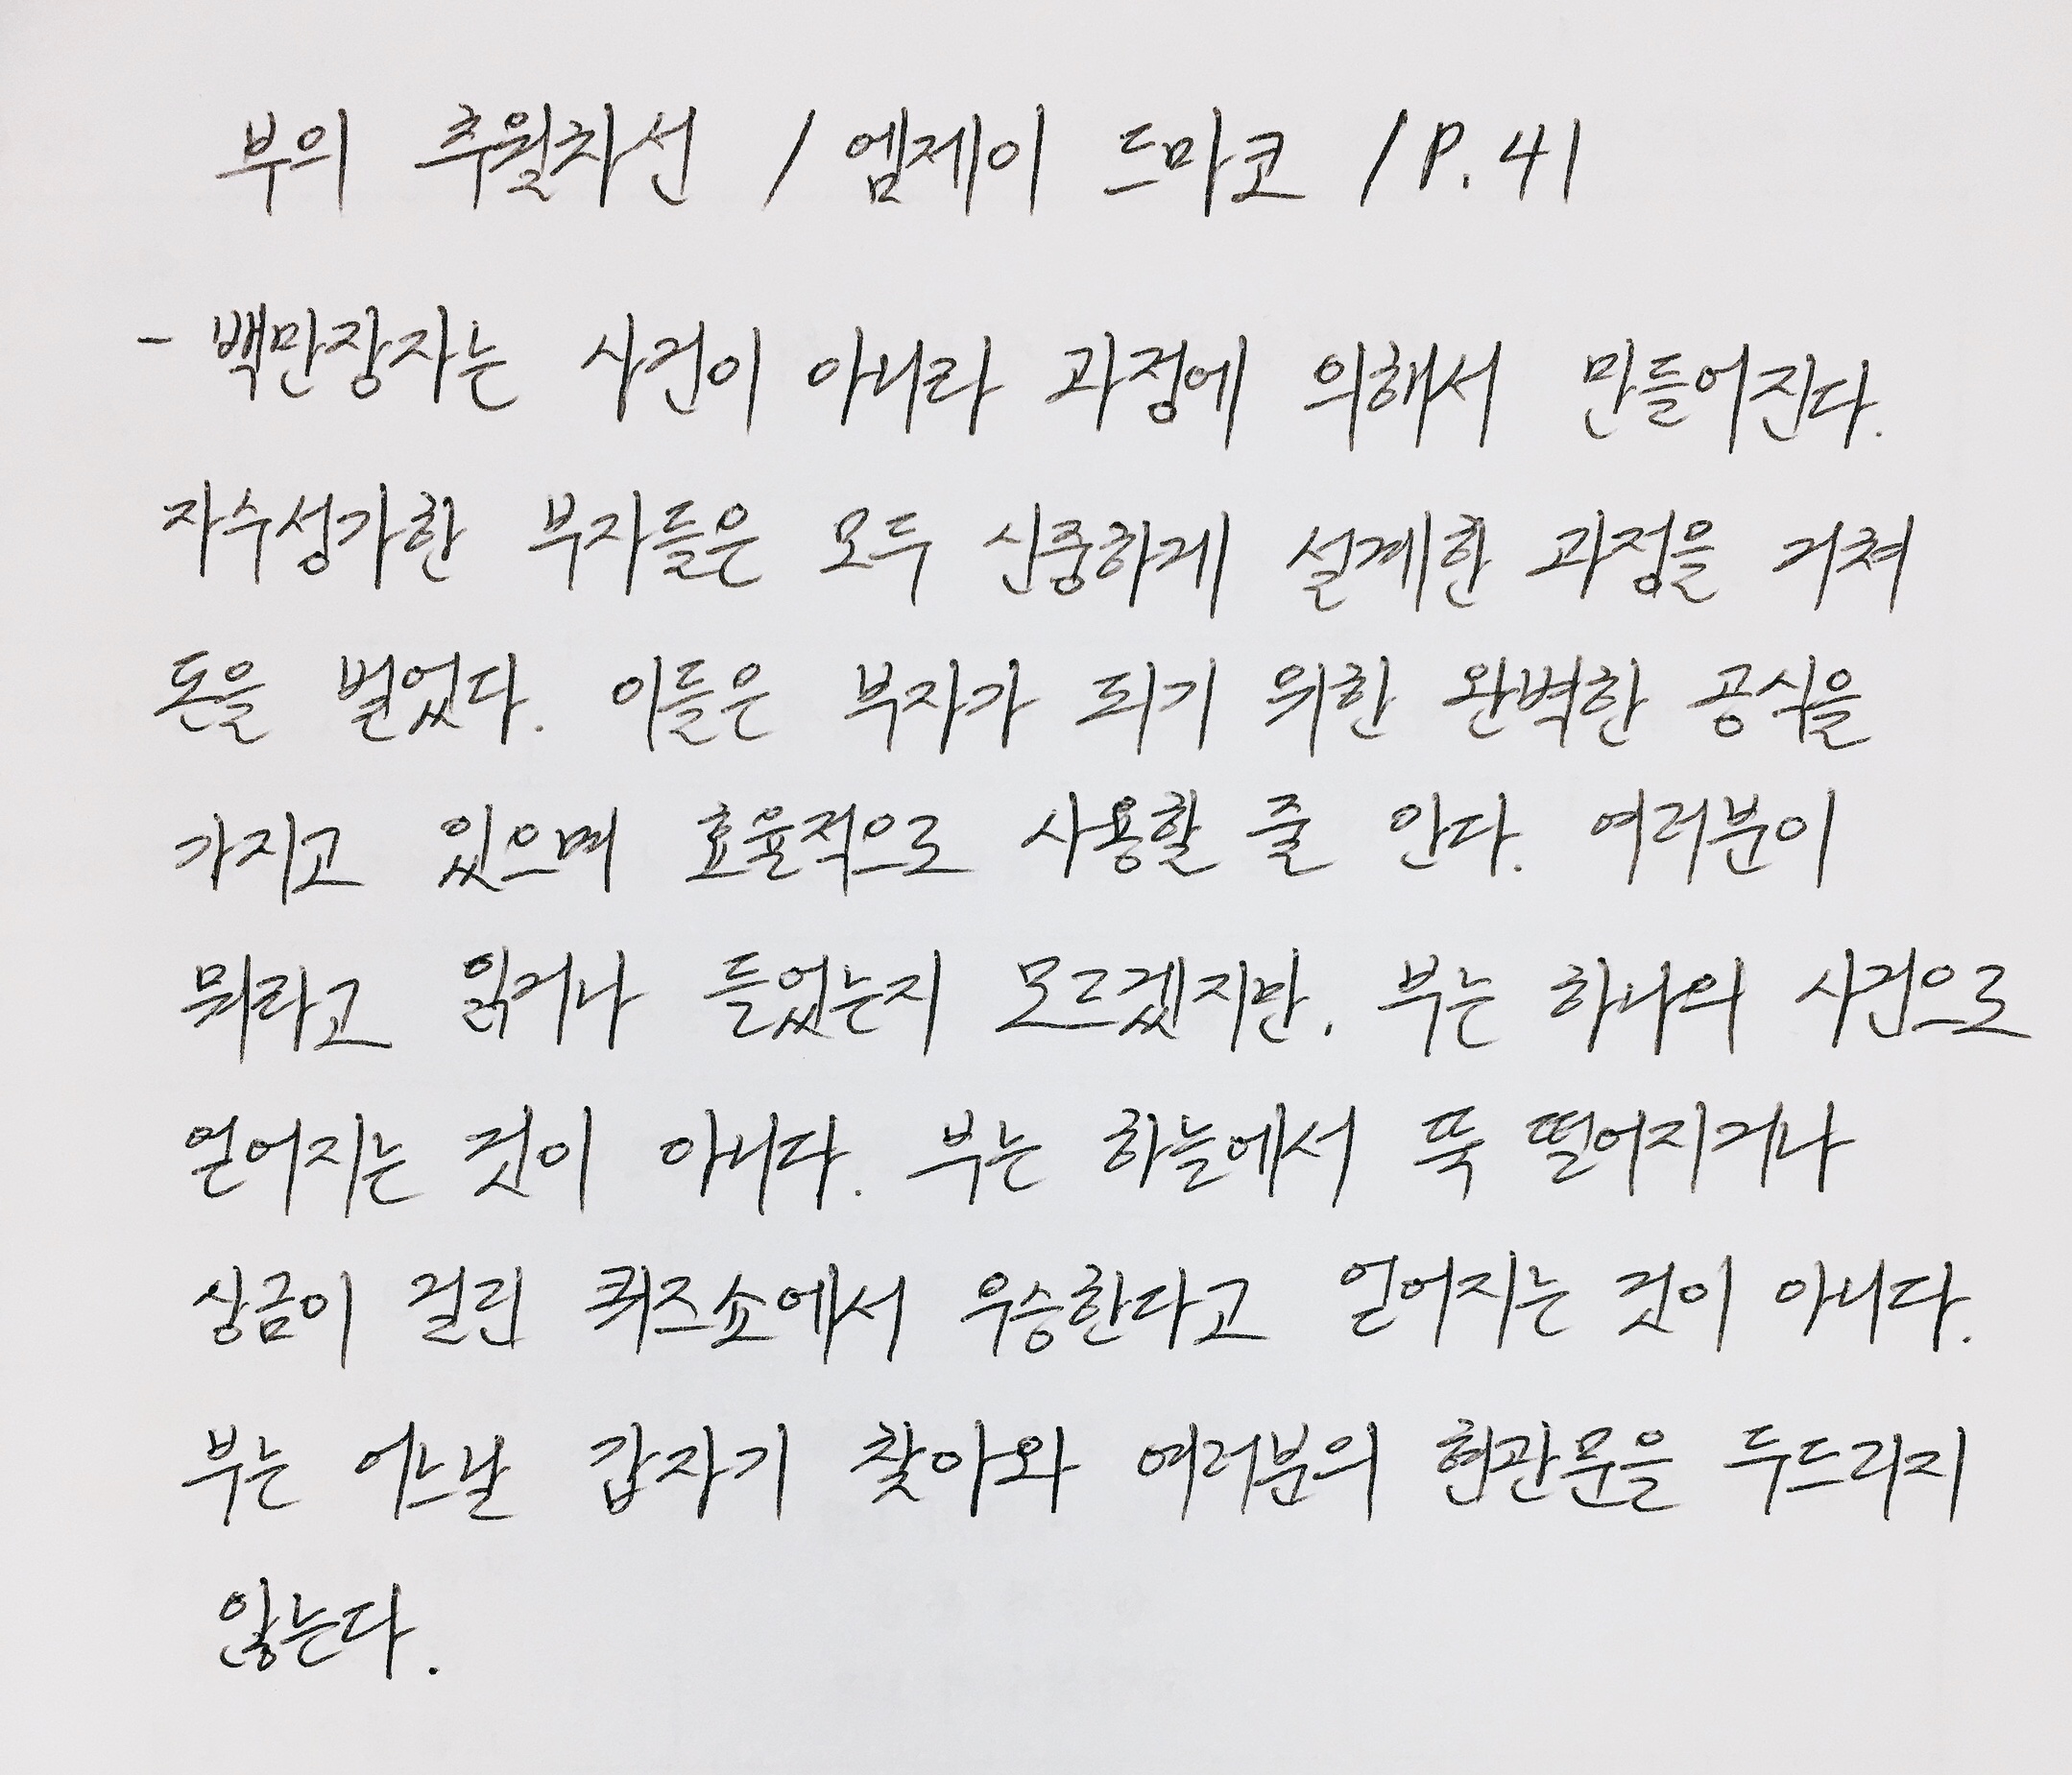 부의 추월차선 / 엠제이 드마코 / P. 41
- 백만장자는 사건이 아니라 과정에 의해서 만들어진다.
자수성가한 부자들은 모두 신중하게 설계한 과정을 거쳐
돈을 벌었다. 이들은 부자가 되기 위한 완벽한 공식을
가지고 있으며 효율적으로 사용할 줄 안다. 여러분이
뭐라고 읽거나 들었는지 모르겠지만, 부는 하나의 사건으로
얻어지는 것이 아니다. 부는 하늘에서 뚝 떨어지거나
상금이 걸린 퀴즈쇼에서 우승한다고 얻어지는 것이 아니다.
부는 어느날 갑자기 찾아와 여러분의 현관문을 두드리지
않는다.